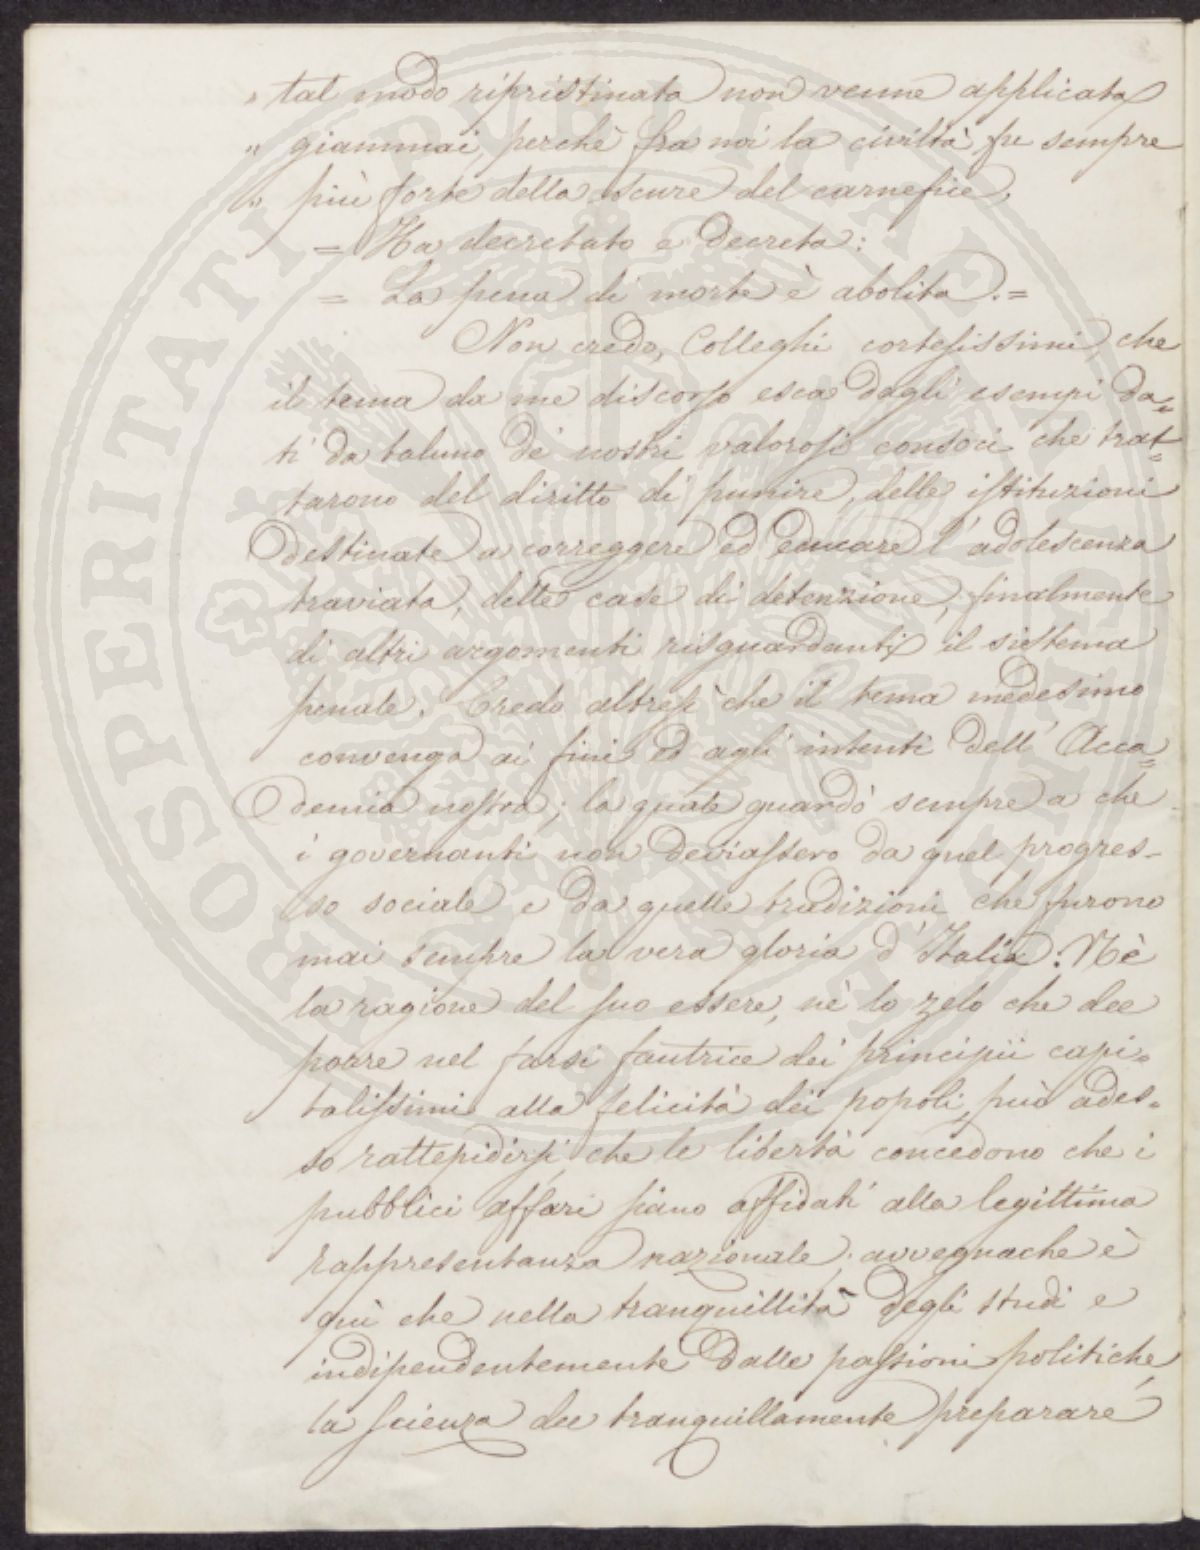 " tal modo ripristinata non venne applicata
" giammai, perchè fra noi la civiltà fu sempre
" più forte della scure del carnefice.
= Ha decretato e Decreta:
= La pena di morte è abolita. =
Non credo, Colleghi cortesissimi, che
il tema da me discorso esca dagli esempi da=
ti da taluno de' nostri valorosi consoci che trat=
tarono del diritto di punire, delle istituzioni
destinate a correggere ed educare l'adolescenza
traviata, delle case di detenzione, finalmente
di altri argomenti risguardanti il sistema
penale. Credo altresì che il tema medesimo
convenga ai fini ed agli intenti dell'Acca=
demia nostra; la quale guardò sempre a che
i governanti non deviassero da quel progres=
so sociale e da quelle tradizioni che furono
mai sempre la vera gloria d'Italia. Nè
la ragione del suo essere, nè lo zelo che dee
porre nel farsi fautrice dei principii capi=
talissimi alla felicità dei popoli, può ades=
so rattepidirsi, che le libertà concedono che i
pubblici affari siano affidati alla legittima
rappresentanza nazionale; avvegnachè è
qui che nella tranquillità degli studi e
indipendentemente dalle passioni politiche,
la scienza dee tranquillamente preparare
PROSPERITATI PUBLICAE AUGENDAE